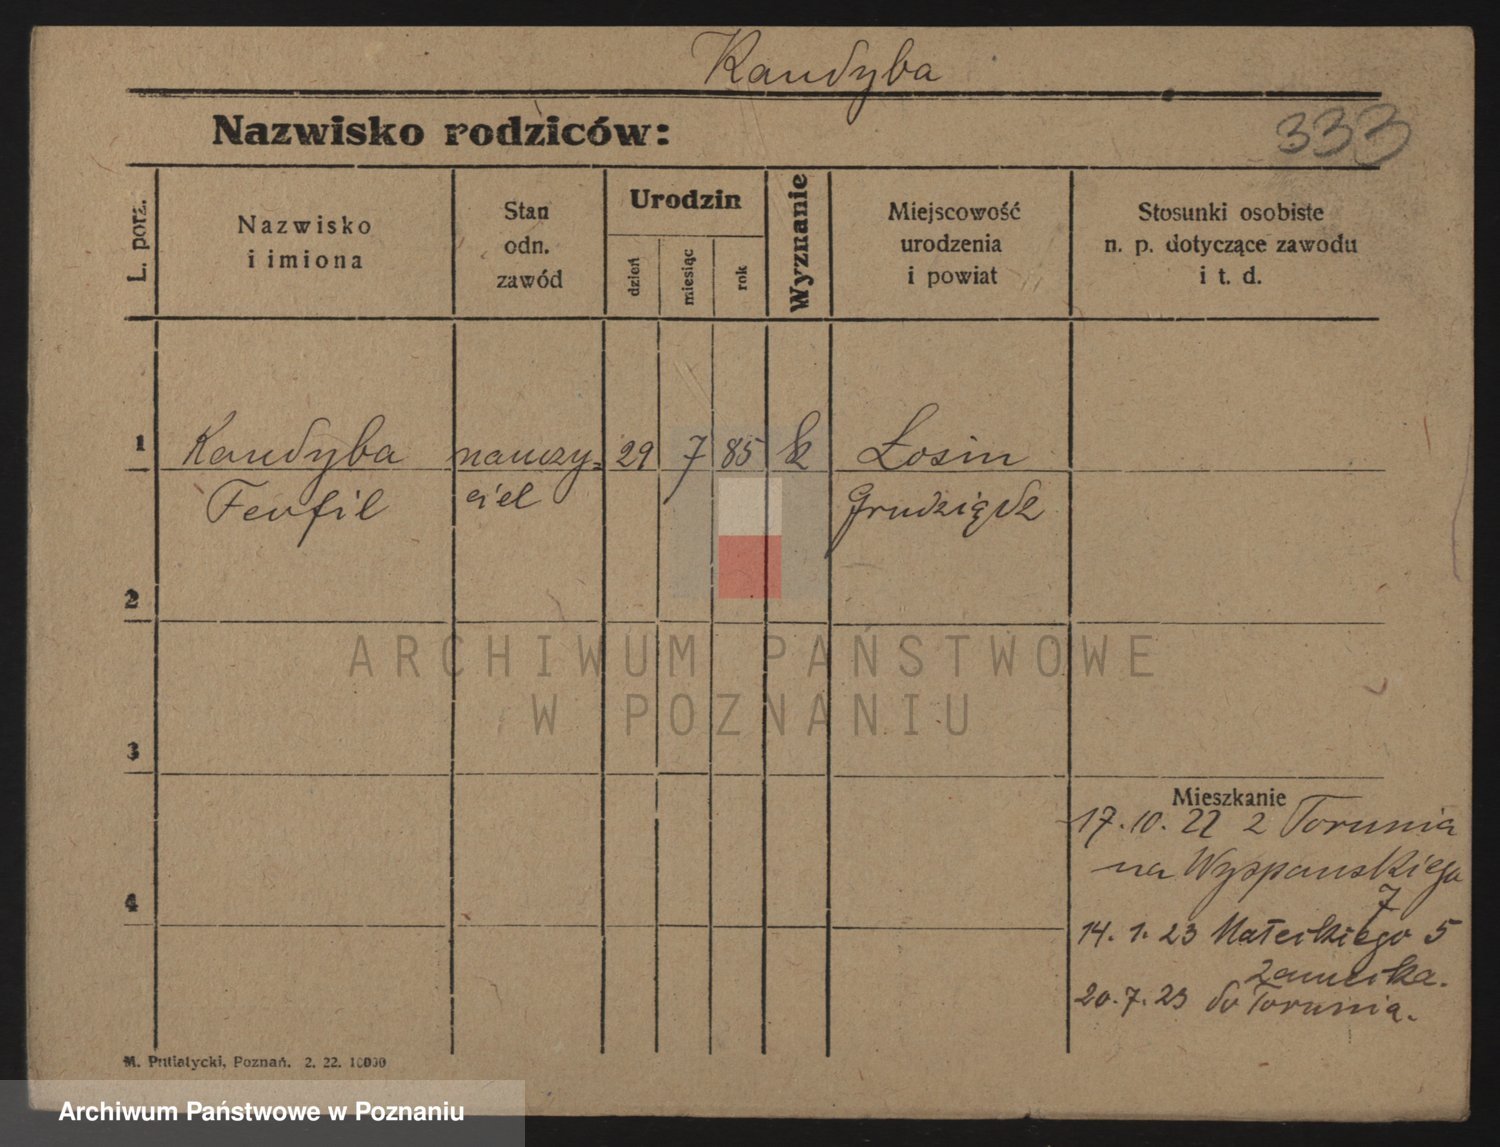 Kandyba
Nazwisko rodziców:
333
L. porz.
Nazwisko
i imiona
Stan
odn.
zawód
Urodzin
dzień
miesiąc
rok
Wyznanie
Miejscowość
urodzenia
i powiat
Stosunki osobiste
n. p. dotyczące zawodu
i t. d.
1 Kandyba nauczy= 29 7 85 k Łosin
Teofil ciel Grudziądz
2
3
4
Mieszkanie
17.10.22 z Torunia
na Wyspanskiego
7
14.1.23 Małeckiego 5
20.7.23 do Torunia.
M. Putiatycki, Poznań. 2. 22. 10000
ARCHIWUM PAŃSTWOWE
W POZNANIU
Archiwum Państwowe w Poznaniu